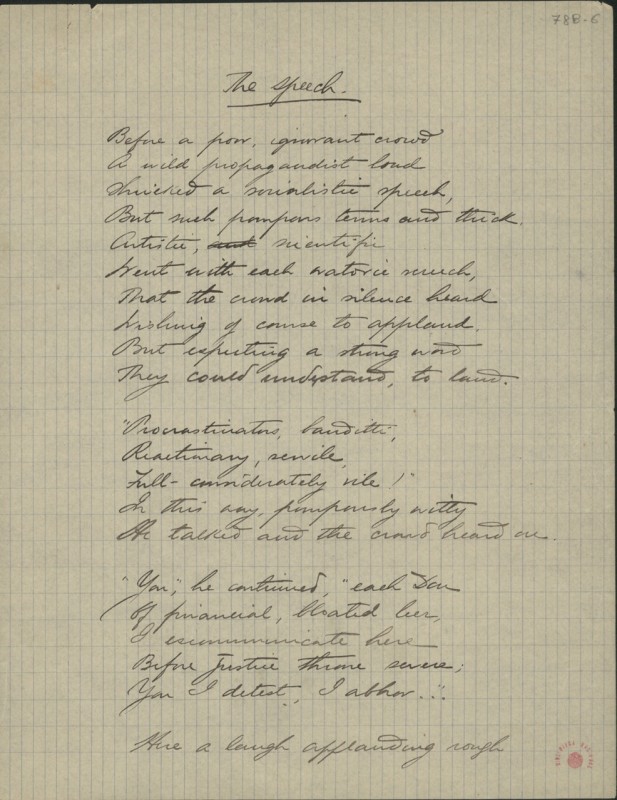 78B-6
The Speech.
Before a poor, ignorant crowd
A wild propagandist loud
Shrieked a socialistic speech,
But such pompous terms and thick
Artistic, and scientific
Went with each oratoric screech,
That the crowd in silence heard
Wishing of course to applaud.
But expecting a strong word
They could understand, to laud.
"Procrastinators, banditti,
Reactionary, servile,
Full-considerately vile!"
In this way, pompously witty
He talked and the crowd heard on.
"You," he continued, "each Don
Of financial, bloated leer,
I excommunicate here
Before Justice throne severe;
You I detest, I abhor...
Here a laugh applauding rough